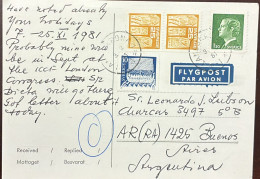 Have noted already
your holidays
7 - 25. XI 1981
Probably mine will
be in Sept at
the ICCF London
Congress. 5/9
Dicta will go there
Got letter about it
today.
FLYGPOST
PAR AVION
Sr. Leonardo J. Lipson
Charcas 3497 5°B
AR(RA) 1425 Buenos
Aires
Argentina
Received
Replied
Mottaget
Besvarat
SVERIGE